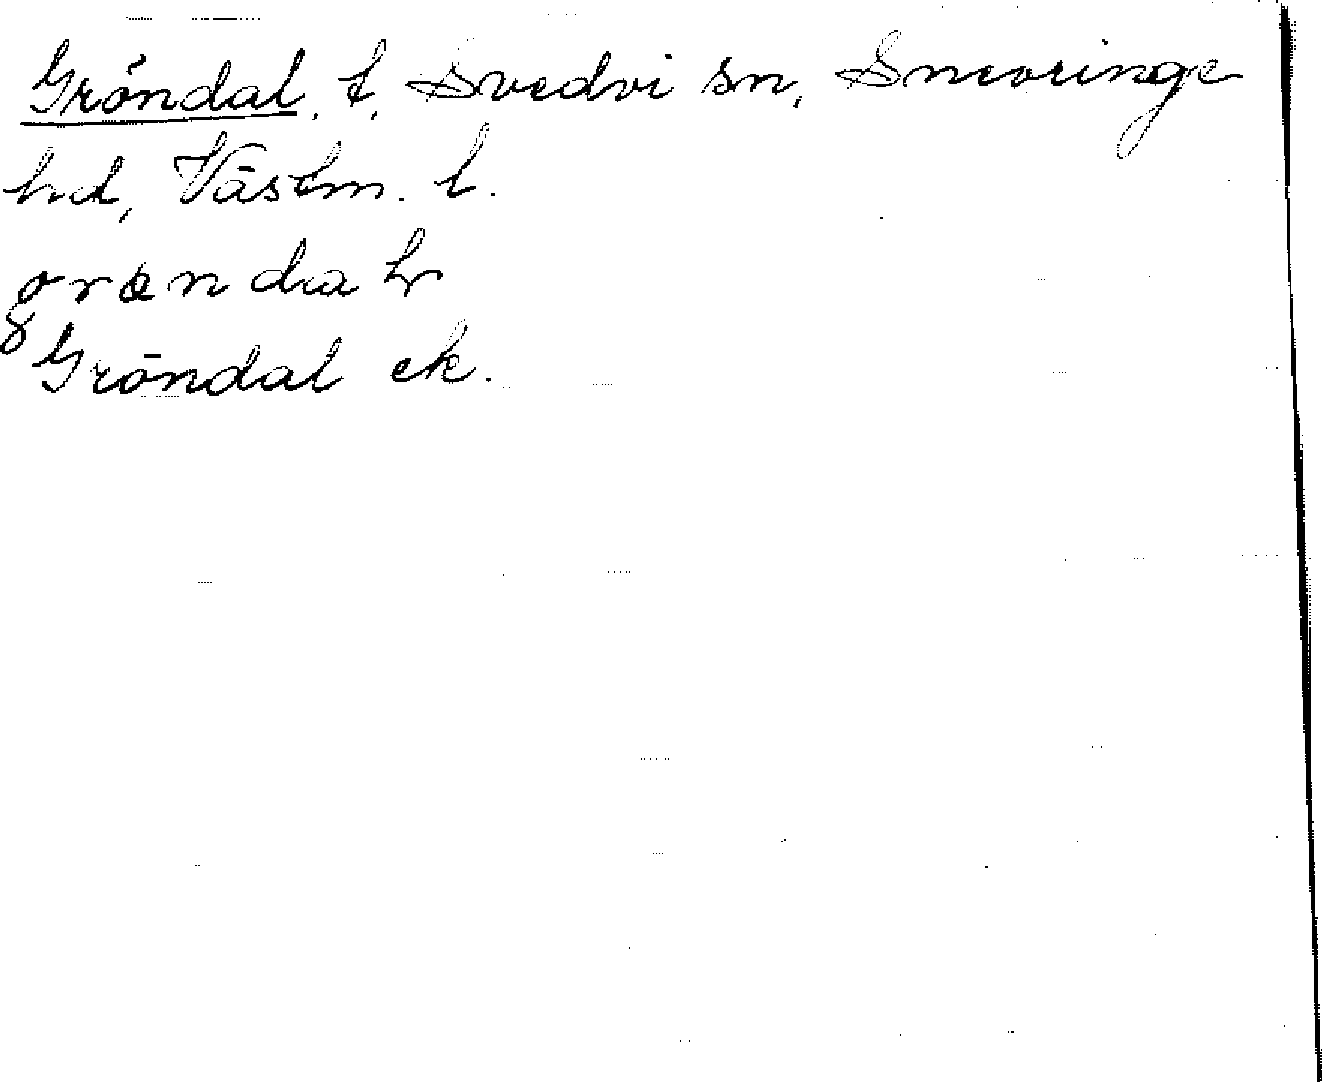 Gröndal, t, Svedvi sn, Snevringe
hd, Västm. l.
Gröndal ek.